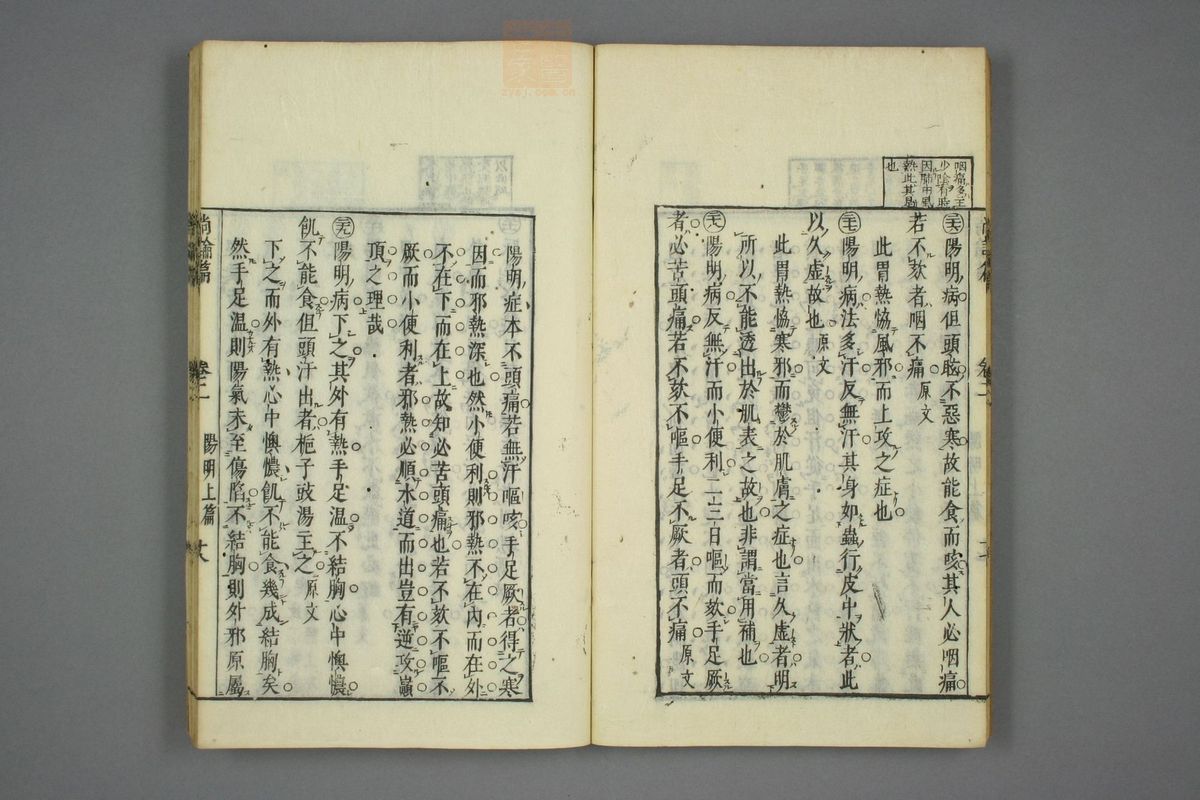 咽痛多主
少陰有時
因肺中風
熱此其易
也
陽明病但頭眩不惡寒故能食而咳其人必咽痛
若不欬者咽不痛 原文
此胃熱恊風邪而上攻之症也
陽明病法多汗反無汗其身如蟲行皮中狀者此
以久虛故也 原文
此胃熱恊寒邪而鬱於肌膚之症也言久虛者明
所以不能透出於肌表之故也非謂當用補也
陽明病反無汗而小便利二三日嘔而欬手足厥
者必苦頭痛若不欬不嘔手足不厥者頭不痛 原文
陽明症本不頭痛若無汗嘔咳手足厥者得之寒
因而邪熱深也然小便利則邪熱不在內而在外
不在下而在上故知必苦頭痛也若不欬不嘔不
厥而小便利者邪熱必順水道而出豈有逆攻巔
頂之理哉
陽明病下之其外有熱手足温不結胸心中懊憹
飢不能食但頭汗出者梔子豉湯主之 原文
下之而外有熱心中懊憹飢不能食幾成結胸矣
然手足温則陽氣未至傷陷不結胸則外邪原屬
尚論篇 卷二 陽明上篇
zysj.com.cn